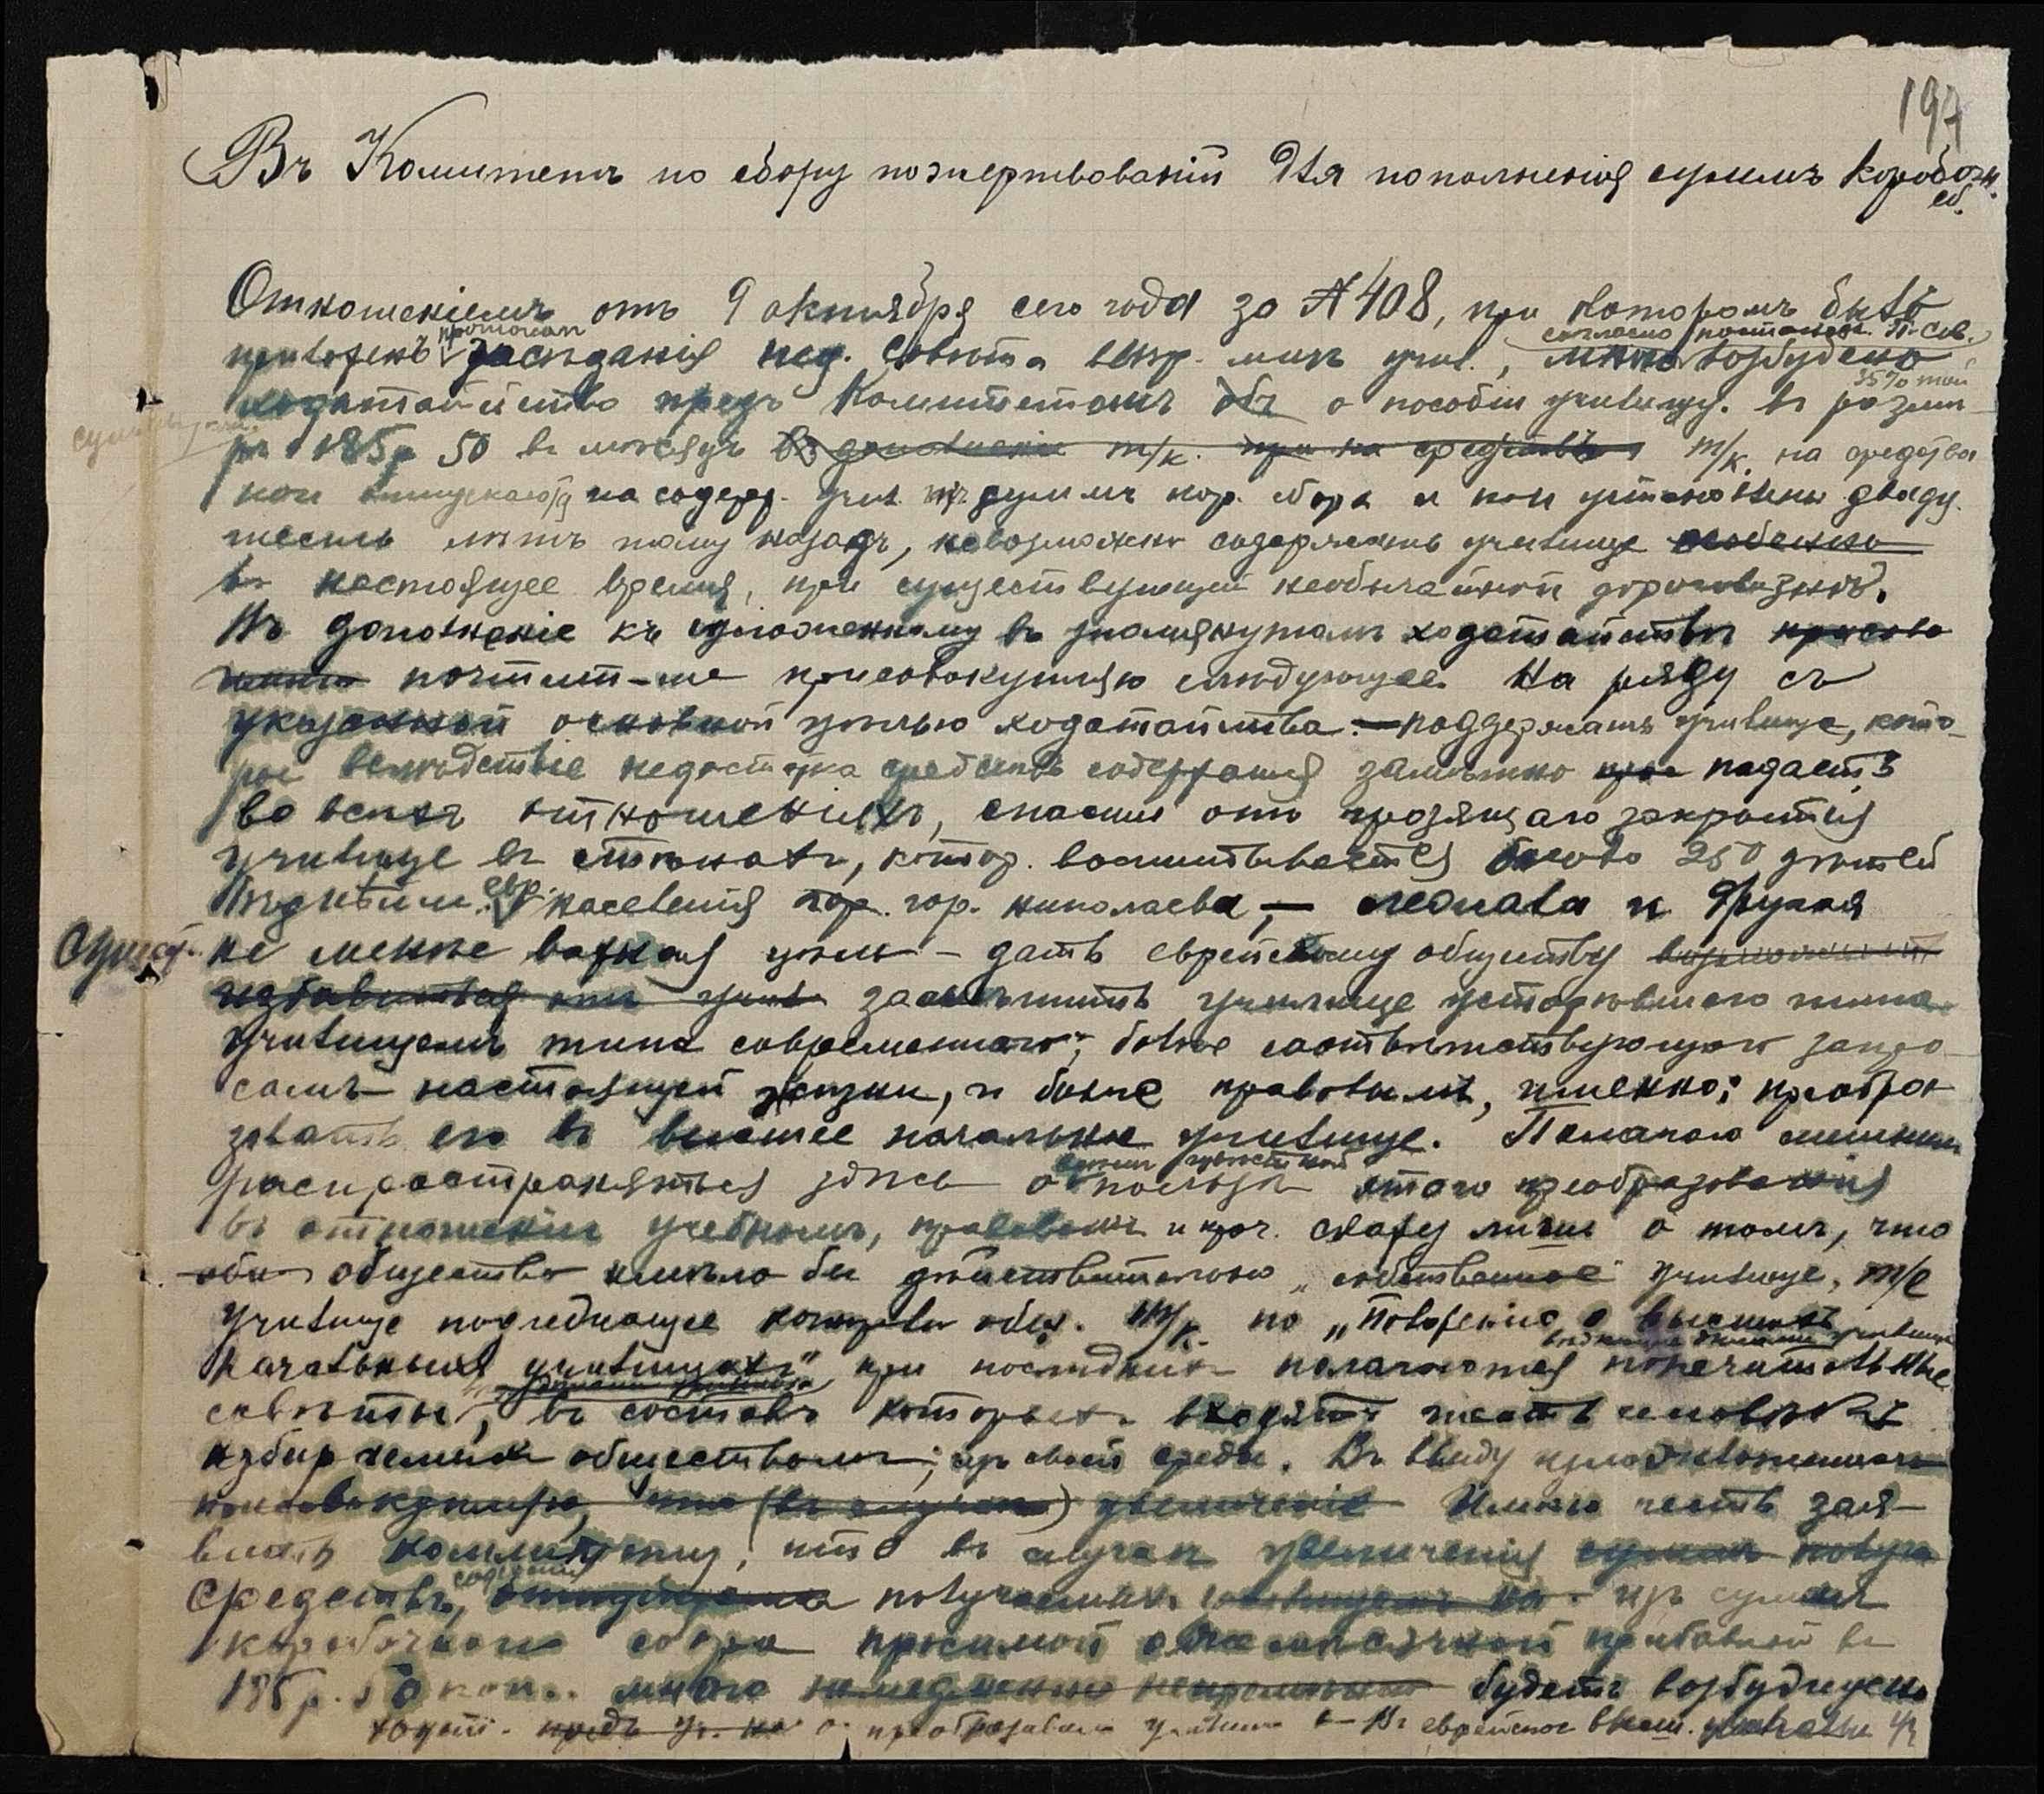 197
Въ Комитетъ по сбору пожертвованій для пополненія суммъ коробочн.
сб.
Отношеніемъ отъ 9 октября сего года за № 408, при которомъ былъ
протокол согласно постанов. П. Сов.
приложенъ засѣданія пед. Совѣта ввѣр. мнѣ учил., мною возбуждено
35% той
ходатайство предъ Комитетомъ объ о пособіи училищу въ размѣ-
рѣ 185 р 50 въ мѣсяцъ въ дополненіе т/к. при на средства т/к. на средства
кои отпускаются на содерж. учил. изъ суммъ кор. сбора и кои установлены двадц.
шесть лѣтъ тому назадъ, невозможно содержать училище особенно
въ настоящее время, при существующей необычайной дороговизнѣ.
Въ дополненіе къ изложенному въ упомянутомъ ходатайствѣ
почтит-ше присовокупляю слѣдующее. На ряду съ
указанной основной цѣлью ходатайства: — поддержать училище, кото-
рое вслѣдствіе недостатка средствъ содержанія замѣтно падаетъ
во всѣхъ отношеніяхъ, спасти отъ грозящаго закрытія
училище въ стѣнахъ, котор. воспитывается около 250 дѣтей
евр.
бѣднѣйш. населенія гор. гор. Николаева, — и другая
не менѣе важная цѣль – дать еврейскому обществу возможность
избавиться отъ учил замѣнить училище устарѣвшаго типа
училищемъ типа современнаго, болѣе соотвѣтствующаго запро-
самъ настоящей жизни, и болѣе правовымъ, именно: преобра-
зовать его въ высшее начальное училище. Полагаю лишнимъ
распространяться здѣсь о пользѣ этого преобразованія
въ отношеніи учебномъ, правовомъ и проч. Скажу лишь о томъ, что
общество имѣло бы дѣйствительно „собственное" училище, т/е
училище подлежащее контролю общ. т/к. по „Положенію о высшихъ
начальныхъ училищахъ" при послѣднихъ полагаются попечительные
совѣты, въ составъ которыхъ входятъ шесть человѣкъ
избираемыхъ обществомъ, изъ своей среды. Въ виду изложеннаго
присовокупляю, что (въ случаѣ) увеличеніе Имѣю честь зая-
вить комитету, что въ случаѣ увеличенія суммъ получа
содержанія
средствъ, получаемыхъ изъ суммъ
коробочнаго сбора просимой ежемѣсячной прибавкой въ
185 р. 50 коп. мною немедленно будетъ возбуждено
ходат. предъ о преобразованіи училища въ еврейское высш.